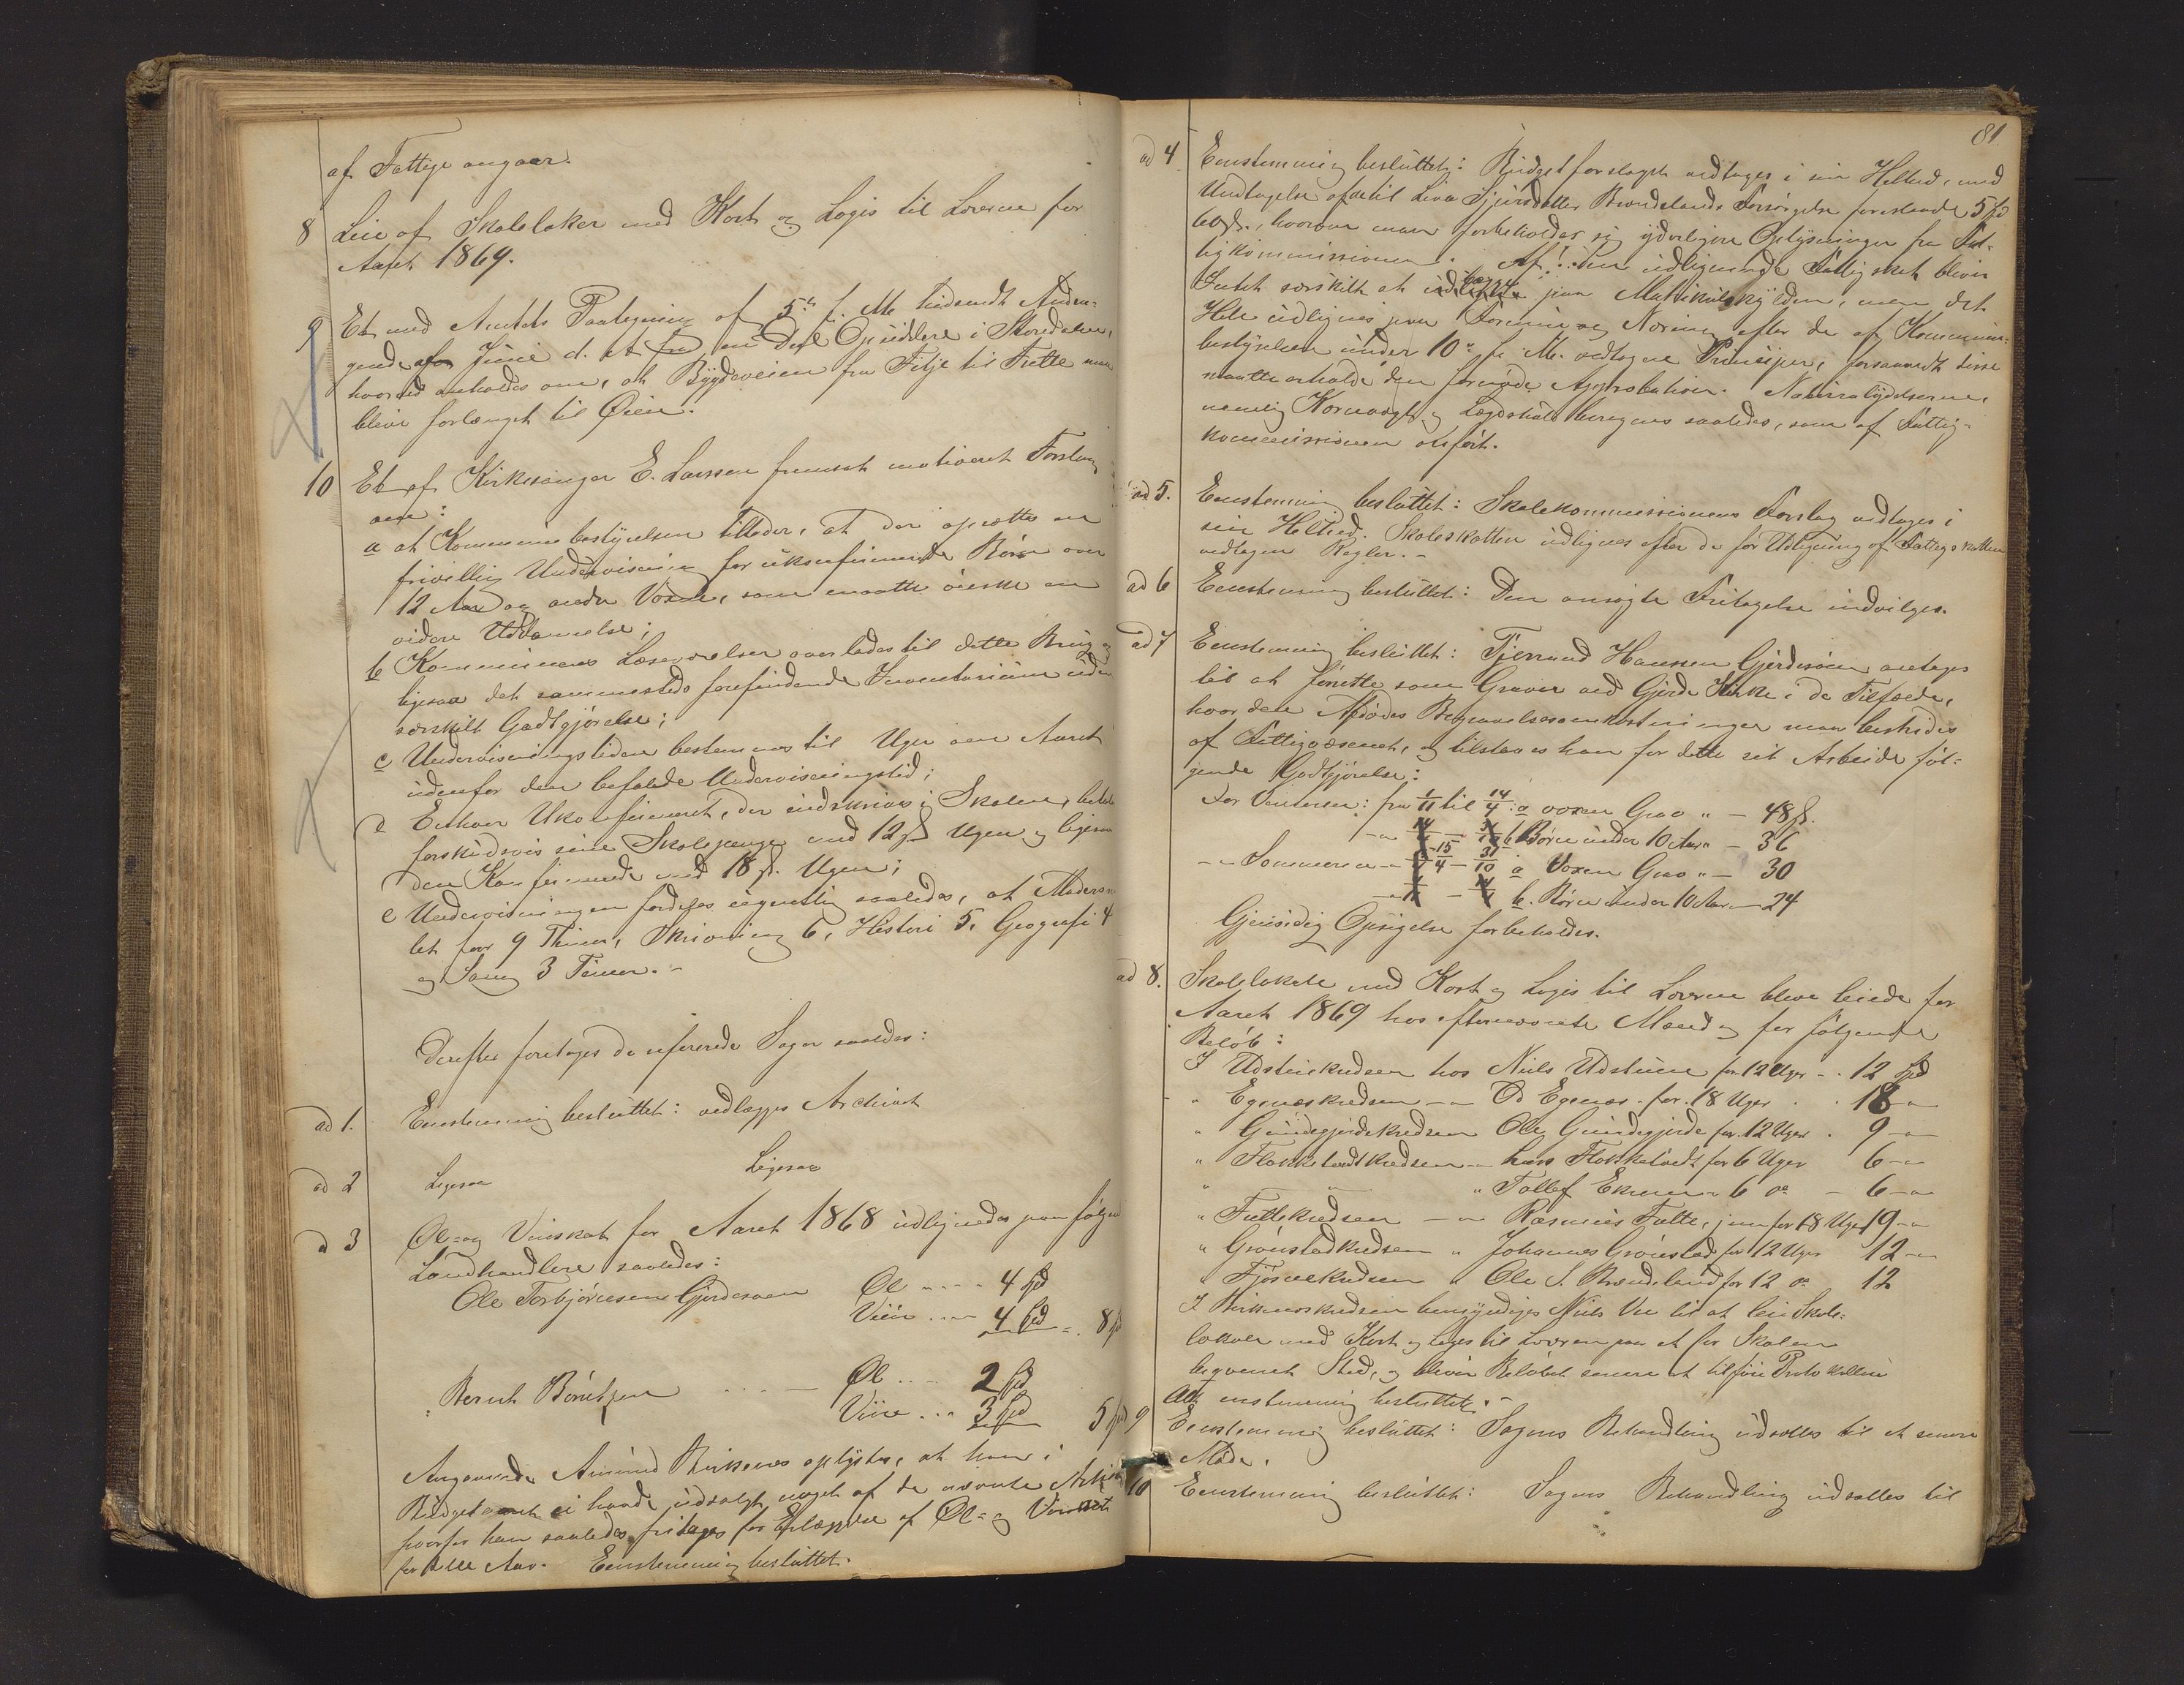 af Fattige angaar.
8 Leie af Skolelokaler med Kost og Logis til Lærerne for
Aaret 1869.
9 Et med Amtets Paategning af 5te f. M. tilsendt Andra-
gende af Juni d. A. fra en Deel Opsiddere i Stordalen,
hvorved anholdes om, at Bygdeveien fra Titje til Tutte maa
blive forlænget til Øien.
10 Et af Kirkesanger E. Larssen fremsat motiveret Forslag
om:
a at Kommunebestyrelsen tillader, at der oprettes en
frivillig Undervisning for ukonfirmerede Børn over
12 Aar og andre Voxne, som maatte ønske en
videre Uddannelse;
b Kommunens Læseværelser overlades til dette Brug og
ligesaa det sammesteds forefindende Inventarium uden
særskilt Godtgjørelse;
c Undervisningstiden bestemmes til Uger om Aaret
udenfor den befalede Undervisningstid;
d Enhver Ukonfirmeret, der indskrives i Skolen, betaler
forskudsvis sine Skolepenge med 12 ß Ugen og ligesaa
den Konfirmerede med 18 ß. Ugen;
e Undervisningen fordeles ugentlig saaledes, at Modersmaa-
let faar 9 Timer, Skrivning 6, Historie 5, Geografi 4
og Sang 3 Timer. -
Derefter foretoges de refererede Sager saaledes:
ad 1. Eenstemmig besluttet: vedlægges Archivet
ad 2 Ligesaa Ligesaa
ad 3 Øl- og Vinskat for Aaret 1868 udlignedes paa følgende
Landhandlere saaledes:
Ole Torbjørnsen Gjerdesøen Øl .... 4 Spd
Viin .... 4 Spd = 8 Spd
Bernt Børretzen .... Øl .... 2 Spd
Viin ... 3 Spd 5 Spd
Angaaende Amund Birkenes oplystes, at han i
Budgetaaret ei havde udsolgt noget af de nævnte Artikler
hvorfor han saaledes fritages for Erlæggelse af Øl- og Vinskat
for dette Aar. Eenstemmig besluttet.
81
ad 4 Eenstemmig besluttet: Budgetforslaget vedtages i sin Helhed, med
Undtagelse af de til Siva Sjursdatter Brendelands Forsørgelse foreslaaede 5 Spd
60 ß., hvorom man forbeholder sig yderligere Oplysninger fra Fat-
tigkommissionen. Af den udlignende Fattigskat bliver
Intet særskilt at udligne paa Matrikulskylden, men det
Hele udlignes paa Formue og Næring efter de af Kommune-
bestyrelsen under 10de f. M. vedtagne Principer, forsaavidt disse
maatte erholde den fornødne Approbation. Naturalydelserne,
nemlig Kornvægt og Lægdshold beregnes saaledes, som af Fattig-
kommissionen anført.
ad 5. Eenstemmig besluttet: Skolekommissionens Forslag vedtages i
sin Helhed. Skoleskatten udlignes efter de for Udligning af Fattigskatten
vedtagne Regler. -
ad 6 Eenstemmig besluttet: Den ansøgte Fritagelse indvilges.
ad 7 Eenstemmig besluttet: Tjerrand Hanssen Gjerdesøen antages
til at forrette som Graver ved Gjerde Kirke i de Tilfælde,
hvor den Afdødes Begravelsesomkostninger maa bestrides
af Fattigvæsenet, og tilstaaes ham for dette sit Arbeide føl-
gende Godtgjørelse:
For Vinteren: fra 1/11 til 14/4: a voxen Grav " - 48 ß.
b Børn under 10 Aar " - 36
-"- Sommeren -"- 15/4 - 31/10 a Voxen Grav " - 30
b. Børn under 10 Aar - 24
Gjensidig Opsigelse forbeholdes.
ad 8. Skolelokale med Kost og Logis til Lærerne bleve leiede for
Aaret 1869 hos efternævnte Mænd og for følgende
Beløb:
I Udstenekredsen hos Niels Udstene for 12 Uger - . 12 Spd
" Egenæskredsen -"- Od Egenæs . for . 18 Uger . . 18 -"-
" Gundegjerdekredsen Ole Gundegjerde for 12 Uger . 9 -"-
" Flokketvedtkredsen -"- Lars Flokketvedt for 6 Uger 6 -"-
" " " Tollef Ekrene - 6 do - 6 -"-
" Tuttekredsen -"- Rasmus Tutte, jun for 18 Uger 19 -"-
" Grønstadkredsen " Johannes Grønstad for 12 Uger 12 -"-
" Fjøsnekredsen " Ole S. Brendeland for 12 do 12
I Birkenæskredsen bemyndiges Niels Vee til at leie Skole-
lokaler med Kost og Logis til Læreren paa et for Skolen
beqvemt Sted, og bliver Beløbet senere at tilføie Protokollen
Alt eenstemmig besluttet. -
9 Eenstemmig besluttet: Sagens Behandling udsættes til et senere
Møde.
10 Eenstemmig besluttet: Sagens Behandling udsættes til